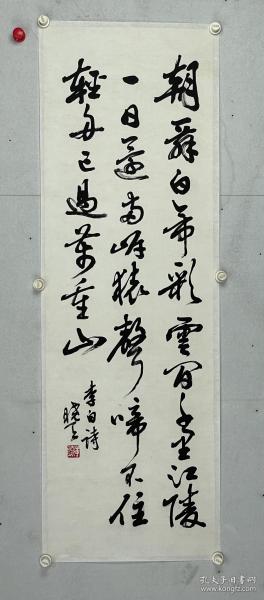 朝辞白帝彩雲间千里江陵
一日還兩岸猿聲啼不住
輕舟已過萬重山
李白詩
曉天
孔夫子旧书网